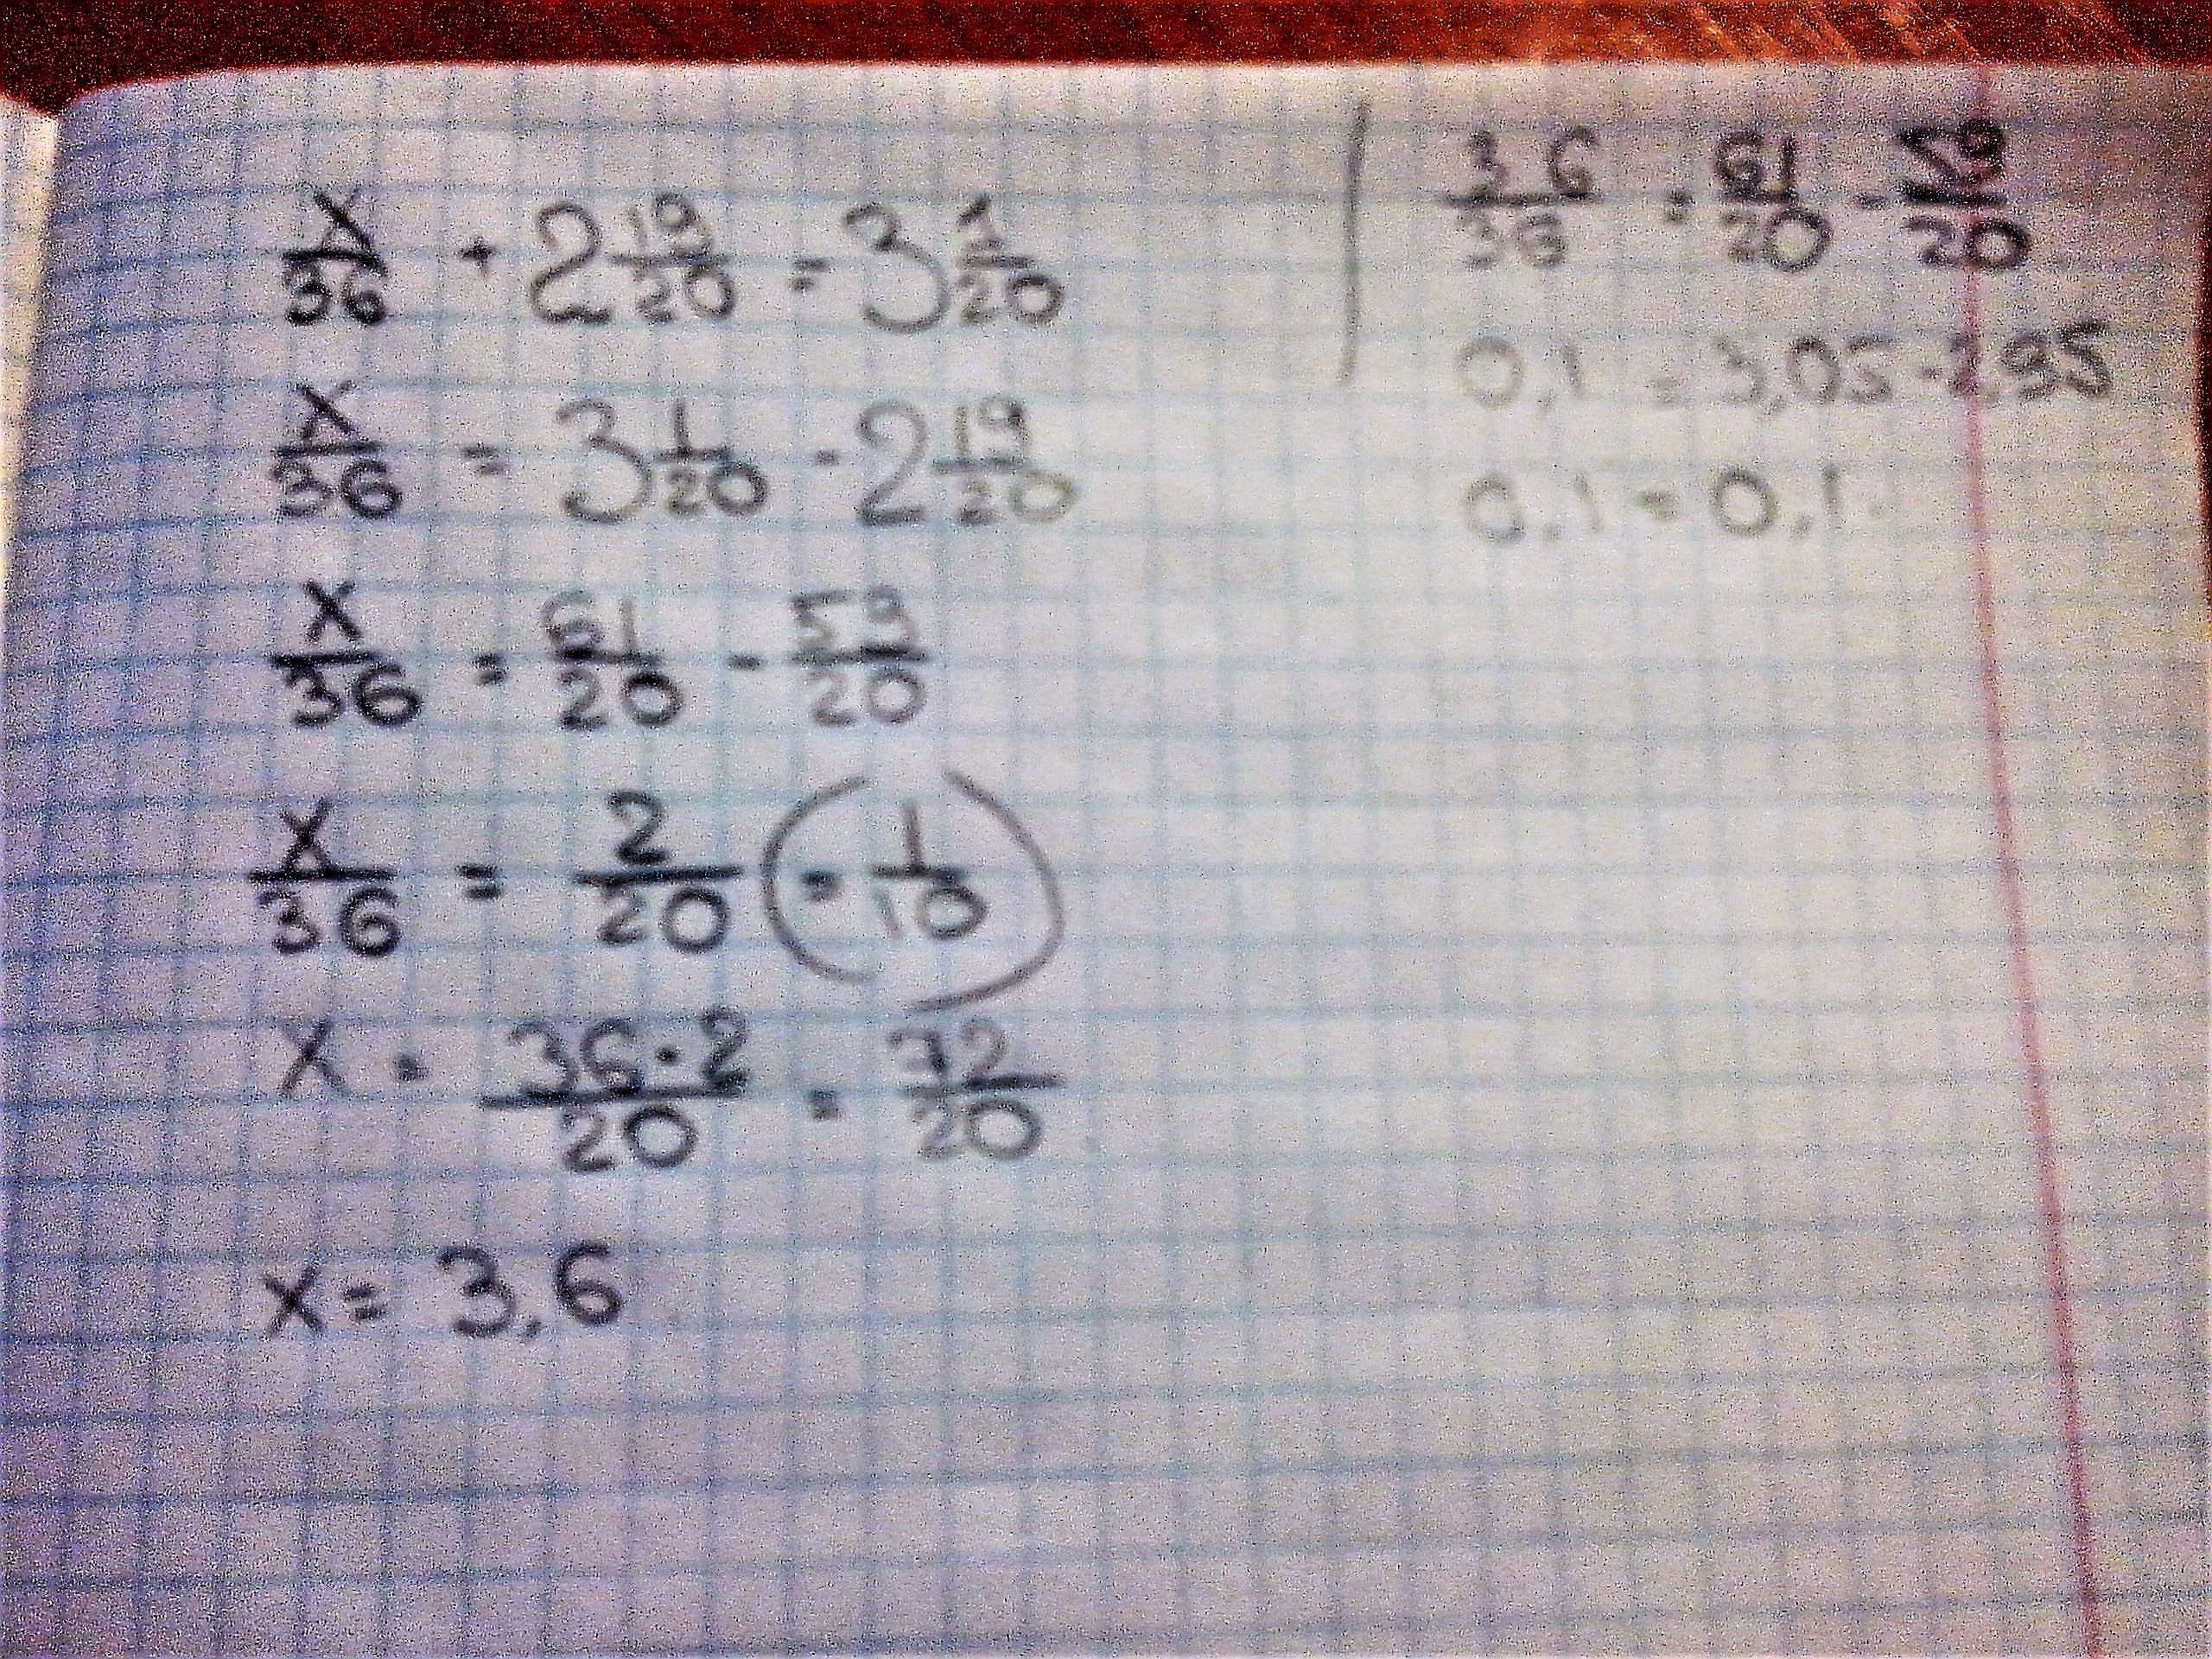 x/36 + 2 19/20 = 3 1/20
x/36 = 3 1/20 - 2 19/20
x/36 = 61/20 - 59/20
x/36 = 2/20 (= 1/10)
x = 36·2/20 = 72/20
x = 3,6
3,6/36 = 61/20 - 59/20
0,1 = 3,05 - 2,95
0,1 = 0,1.